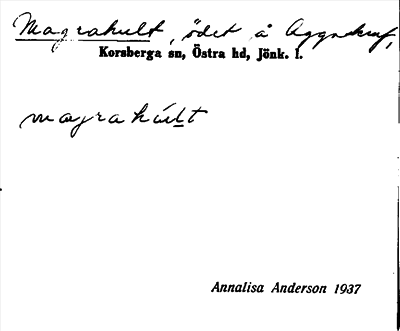 Magrahult, ödet å Aggaskruv,
Korsberga sn, Östra hd, Jönk. l.
magrahúlt
Annalisa Anderson 1937